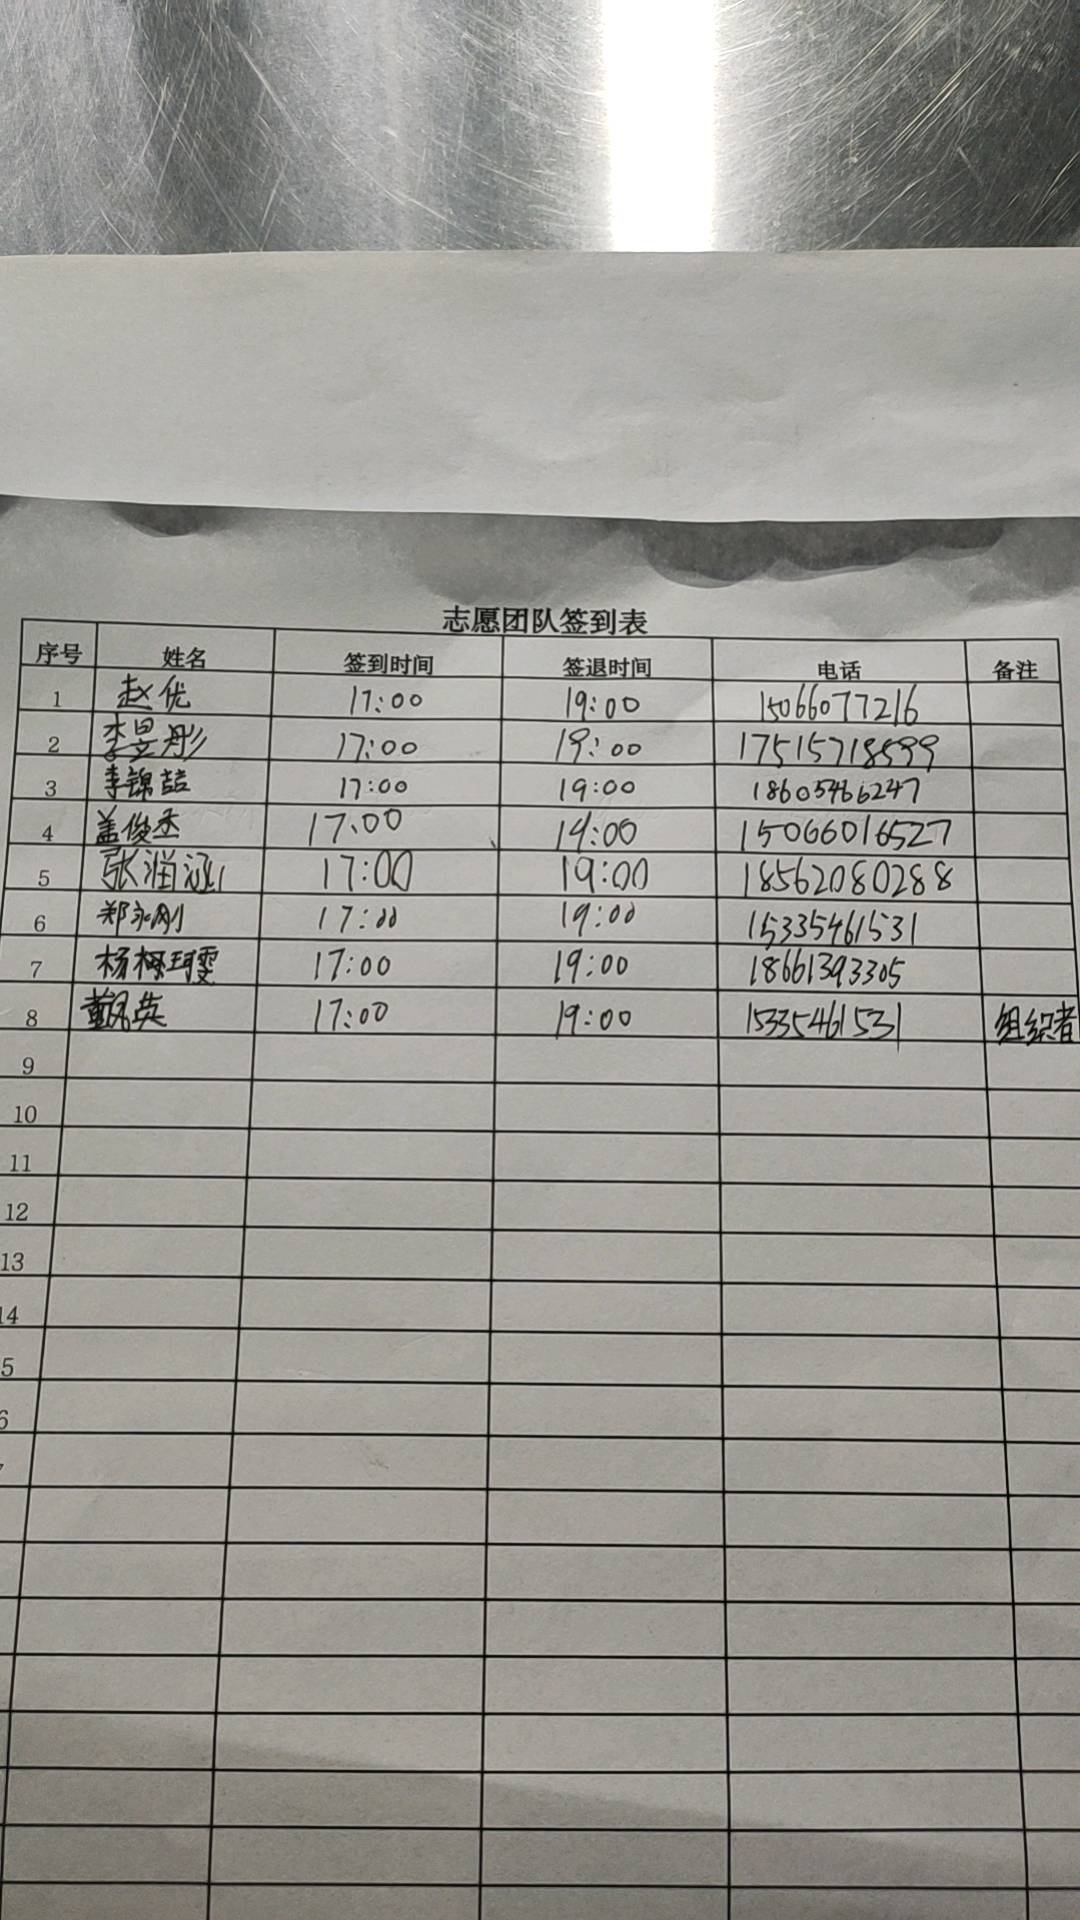 志愿团队签到表
序号 姓名 签到时间 签退时间 电话 备注
1 赵优 17:00 19:00 15066077216
2 李昱彤 17:00 19:00 17515718599
3 李锦喆 17:00 19:00 18605466247
4 盖俊丞 17:00 19:00 15066016527
5 张润涵 17:00 19:00 18562080288
6 郑永刚 17:00 19:00 15335461531
7 杨 珂雯 17:00 19:00 18661393305
8 董凤英 17:00 19:00 15335461531 组织者
9
10
11
12
13
14
5
6